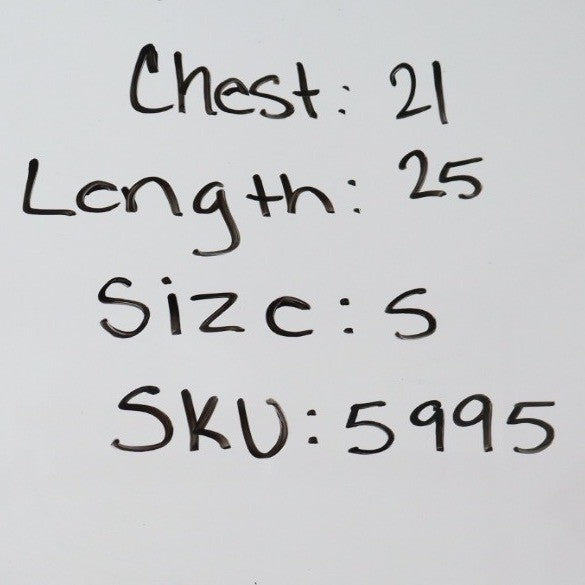 Chest: 21
Length: 25
Size: S
SKU: 5995